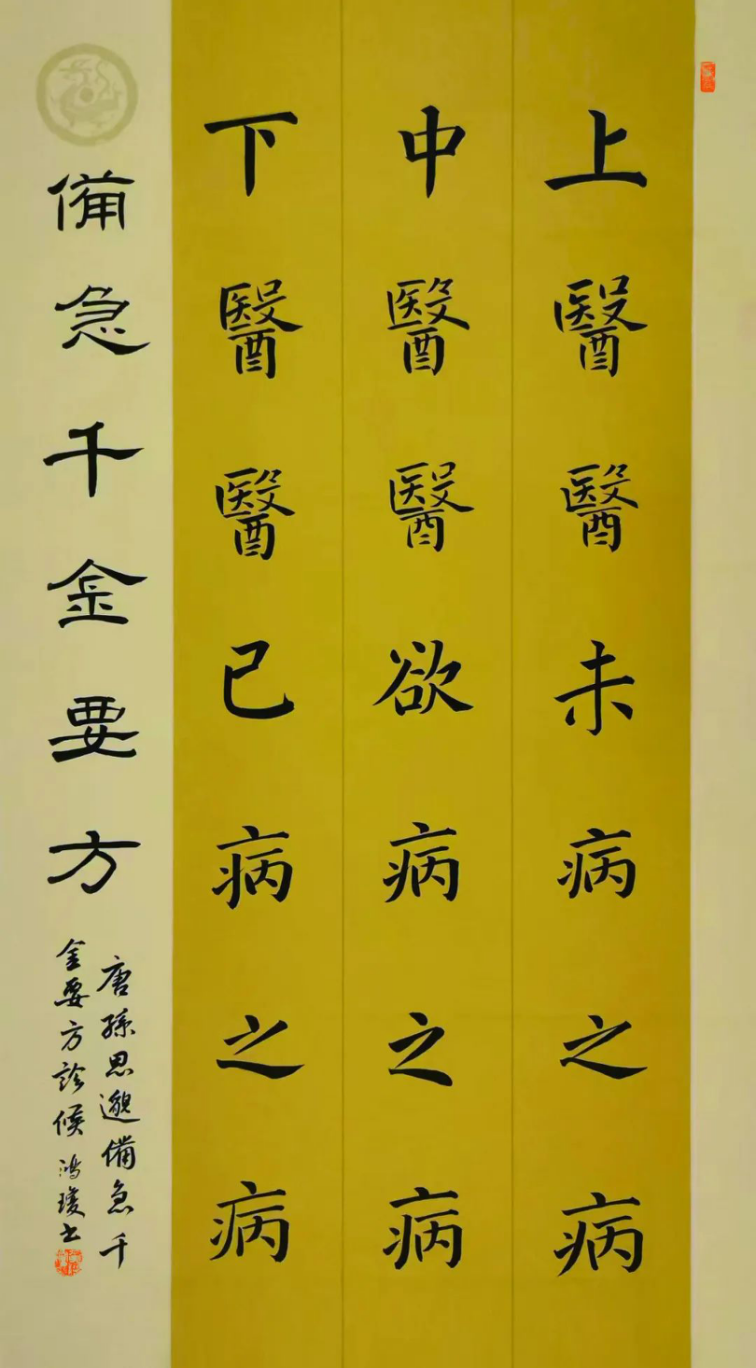 上醫醫未病之病
中醫醫欲病之病
下醫醫已病之病
備急千金要方
唐孫思邈備急千
金要方診候 鴻瓊书